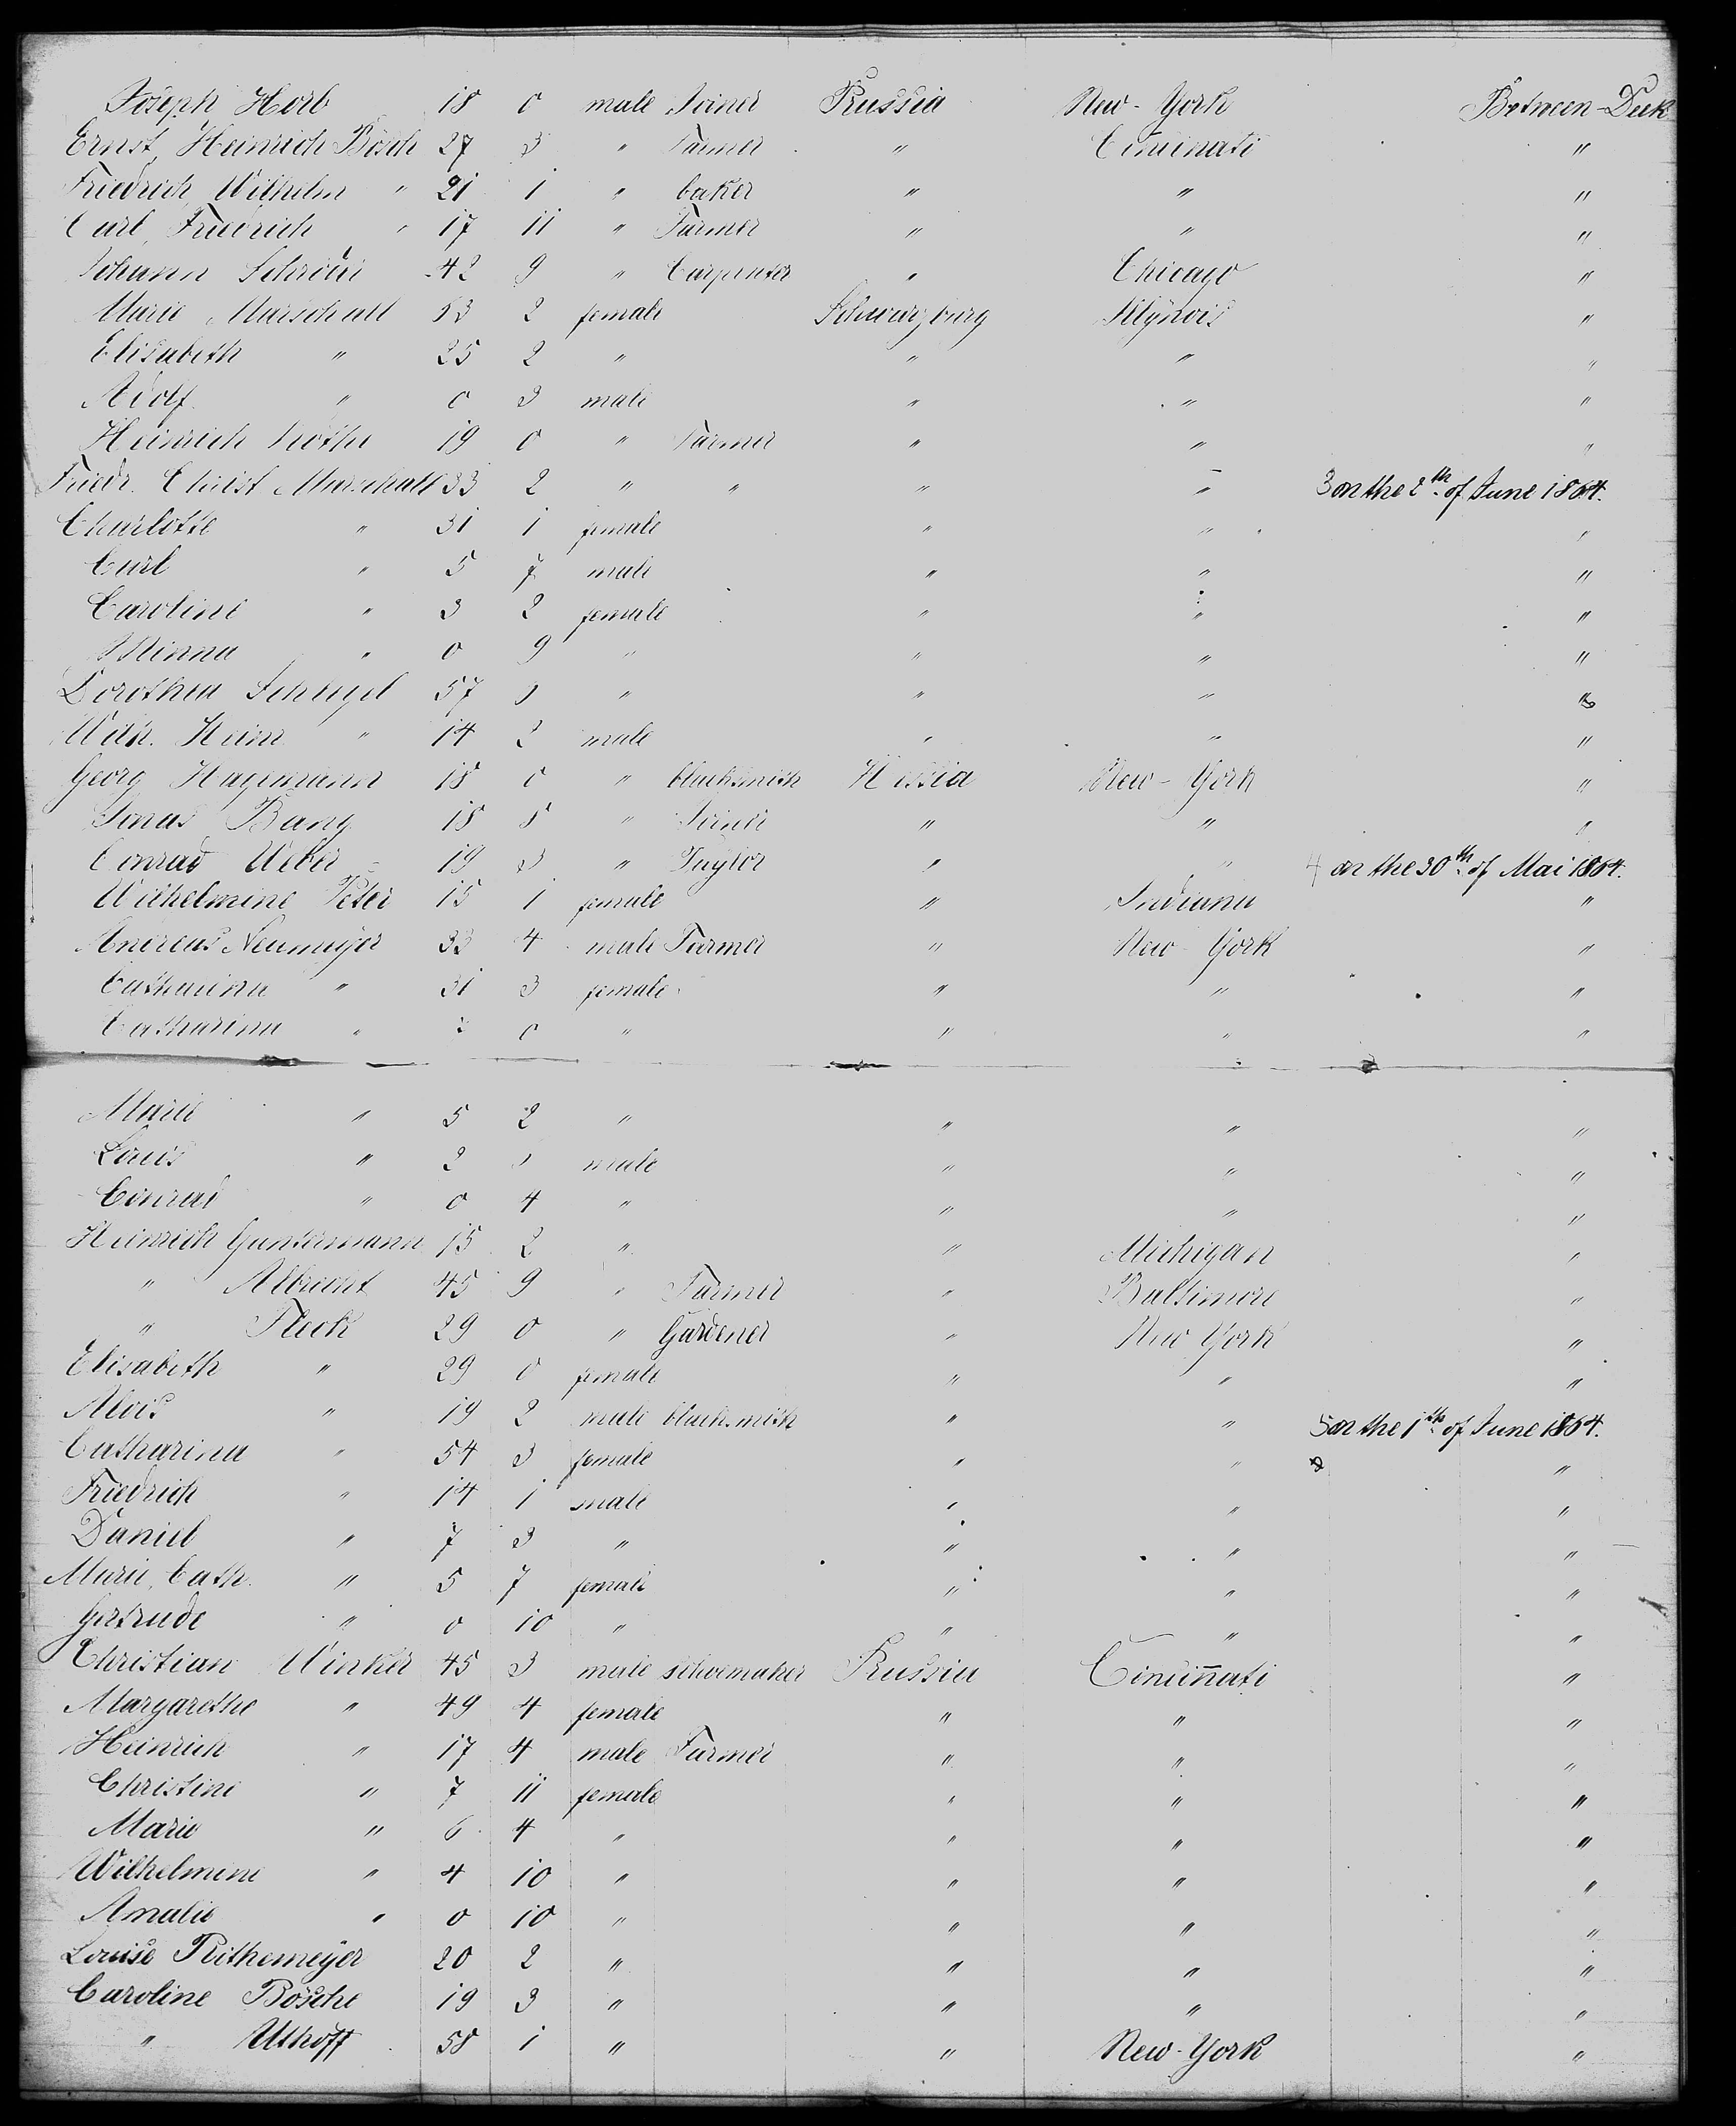 Joseph Horb 18 0 male Joiner Prussia New-York Between-Deck
Ernst Heinrich Bösch 27 3 " Farmer " Cincinati "
Friedrich Wilhelm " 21 1 " baker " " "
Carl Friedrich " 17 11 " Farmer " " "
Johann Schröder 42 9 " Carpenter " Chicago "
Marie Marschall 53 2 female Schwarzburg Illÿnois "
Elisabeth " 25 2 " " " "
Adolf " 0 3 male " " "
Heinrich 19 0 " Farmer " " "
Friedr. Christ Marschall 33 2 " " " " 3 on the 2th of June 1864.
Charlotte " 31 1 female " " "
Carl " 5 7 male " " "
Caroline " 3 2 female " " "
Minna " 0 9 " " " "
Dorothea Schlegel 57 " " " "
Wilh. Heinr. " 14 2 male " " "
Georg Hagemann 18 0 " blacksmith Hessia New-York "
Jonas Bang 18 5 " Joiner " " "
Conrad Weber 19 3 " Taylor " " 4 on the 30th of Mai 1864.
Wilhelmine Peter 15 1 female " Indiana "
Andreas Neumaÿer 33 4 male Farmer " New-York "
Catharina " 31 3 female " " "
Catharina " 0 " " " "
Marie " 5 2 " " " "
Louis " 2 male " " "
Conrad " 0 4 " " " "
Heinrich Guntermann 15 2 " " Michigan "
" Albrecht 45 9 " Farmer " Baltimore "
" Fleck 29 0 " Gardener " New York "
Elisabeth " 29 0 female " " "
Alois " 19 2 male blacksmith " " 5 on the 1th of June 1864.
Catharina " 54 3 female " " "
Friedrich " 14 1 male " " "
Daniel " 7 3 " " " "
Marie Cath. " 5 7 female " " "
Gertrude " 0 10 " " " "
Christian Winker 45 3 male schoemaker Prussia Cincinnati "
Margarethe " 49 4 female " " "
Heinrich " 17 4 male Farmer " " "
Christine " 7 11 female " " "
Marie " 6 4 " " " "
Wilhelmine " 4 10 " " " "
Amalie " 0 10 " " " "
Louise Rithemeÿer 20 2 " " " "
Caroline Bösche 19 3 " " " "
" Uthoff 58 1 " " New-York "